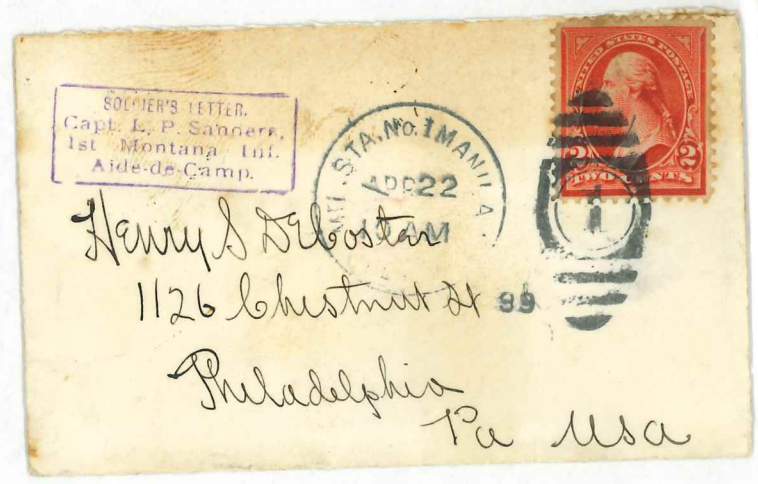 SOLDIER'S LETTER.
Capt. L. P. Sanders,
1st Montana Inf.
Aide-de-Camp.
STA. No. 1 MANILA
APR 22
10 AM
99
1
UNITED STATES POSTAGE
2 2
TWO CENTS
Henry S
1126 Chestnut St
Philadelphia
Pa Usa